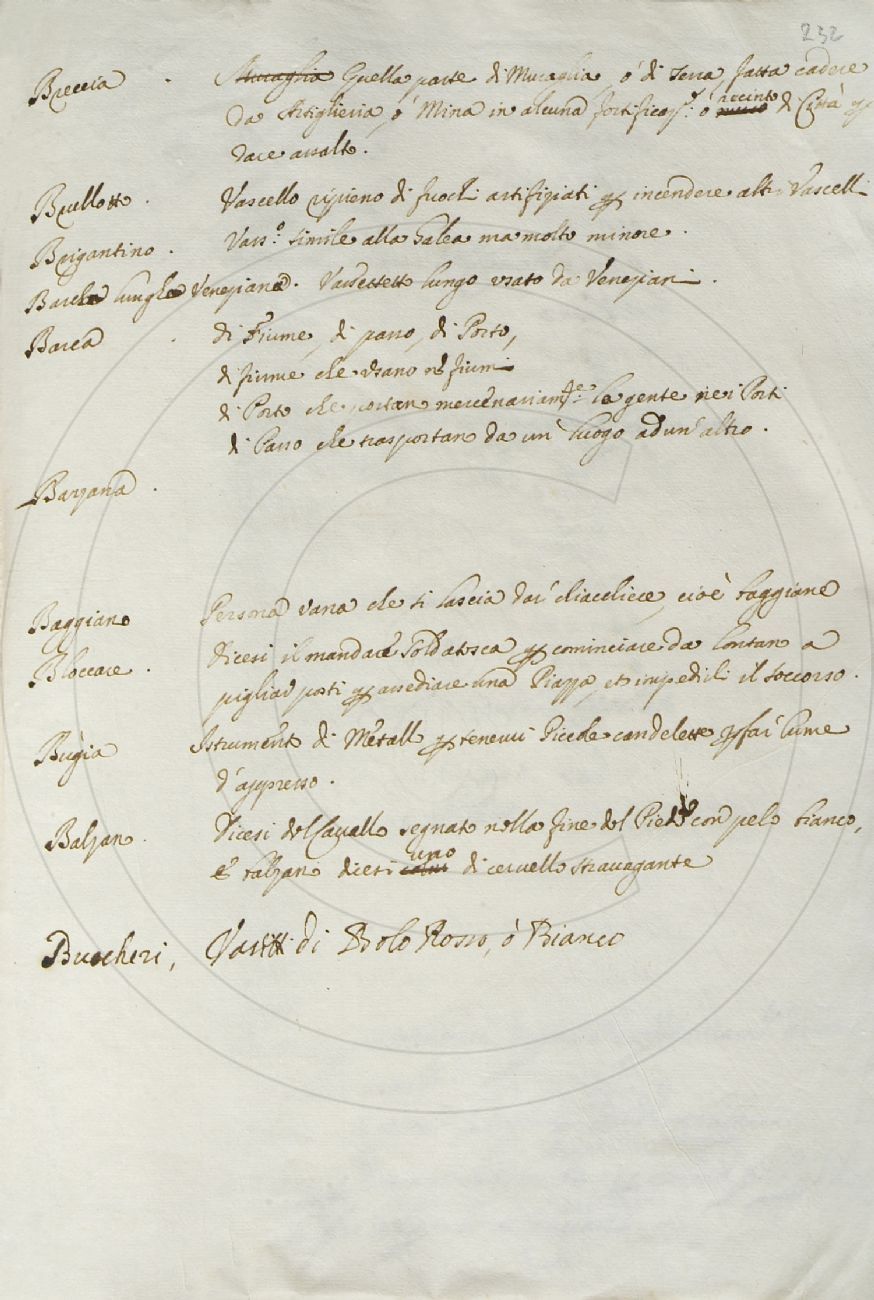 232
Breccia . Muraglia Quella parte di Muraglia, ó di Terra fatta cadere
da Artiglieria, ó Mina in alcuna fortificaz.e ó muro recinto di Città per
dare assalto.
Brullotto . Vascello ripieno di fuochi artifiziati per incendere altri Vascelli
Brigantino . Vass.o simile alla Galea ma molto minore .
Barche lunghe Veneziane . Vassettetto lungo usato da Veneziani .
Barca . di Fiume, di passo, di Porto,
di fiume che usano ne fiumi
di Porto che portan mercenariam.te la gente nei Porti
di Passo che trasportan da un' luogo ad un' altro .
Barzana .
Baggiano Persona vana che si lascia dar' chiacchiere, cioè baggiane
Bloccare . dicesi il mandare Soldatesca per cominciare da lontan a
pigliar posti per assediare una Piazza, et impedirli il soccorso .
Bugia Istrumento di Metallo per tenervi Piccole candelette per far lume
d'appresso .
Balzan . Dicesi del Cavallo segnato nella fine del Piede con pelo bianco,
e balzan dicesi uno di cervello stravagante
Buccheri, Vasetti di Bolo Rosso, ó Bianco